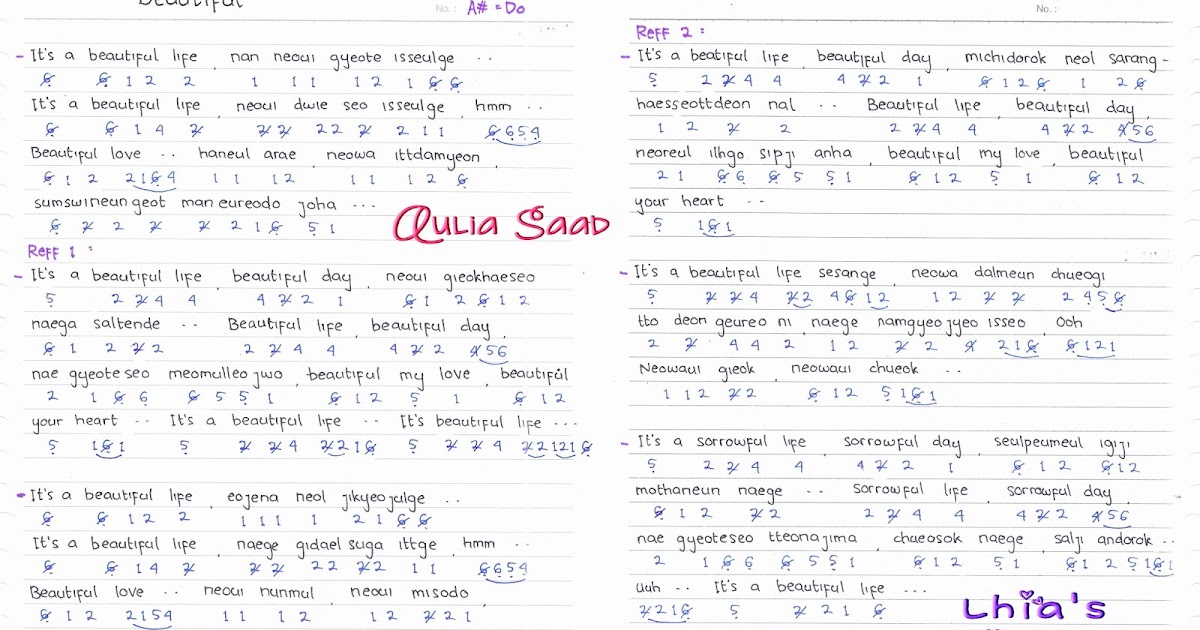 Beautiful
No. : A# = Do
- It's a beautiful life, nan neoui gyeote isseulge ..
6 6 1 2 2 1 1 1 1 2 1 6 6
It's a beautiful life, neoui dwie seo isseulge, hmm ..
6 6 1 4 2 2 2 2 2 2 2 1 1 6 6 5 4
Beautiful love .. haneul arae, neowa ittdamyeon,
6 1 2 2 1 6 4 1 1 1 2 1 1 1 2 6
sumswineun geot man eureodo joha ...
6 2 2 2 2 2 1 6 5 1
Qulia Saad
Reff 1 :
- It's a beautiful life, beautiful day, neoui gieokhaeseo
5 2 2 4 4 4 2 2 1 6 1 2 6 1 2
naega saltende .. Beautiful life, beautiful day,
6 1 2 2 2 2 2 4 4 4 2 2 4 5 6
nae gyeote seo meomulleo jwo, beautiful my love, beautiful
2 1 6 6 6 5 5 1 6 1 2 5 1 6 1 2
your heart .. It's a beautiful life .. It's beautiful life ...
5 1 6 1 5 2 2 4 2 2 1 6 5 2 2 4 2 2 1 2 1 6
- It's a beautiful life, eojena neol jikyeojulge ..
6 6 1 2 2 1 1 1 1 2 1 6 6
It's a beautiful life, naege gidael suga ittge, hmm ..
6 6 1 4 2 2 2 2 2 2 2 1 1 6 6 5 4
Beautiful love .. neoui nunmul, neoui misodo,
6 1 2 2 1 5 4 1 1 1 2 1 2 2 2 1
No. :
Reff 2 :
- It's a beatiful life, beautiful day, michidorok neol sarang -
5 2 2 4 4 4 2 2 1 6 1 2 6 1 2 6
haesseottdeon nal .. Beautiful life, beautiful day,
1 2 2 2 2 2 4 4 4 2 2 4 5 6
neoreul ilhgo sipji anha, beautiful my love, beautiful
2 1 6 6 6 5 5 1 6 1 2 5 1 6 1 2
your heart ..
5 1 6 1
- It's a beautiful life sesange, neowa dalmeun chueogi
5 2 2 4 2 2 4 6 1 2 1 2 2 2 2 4 5 6
tto deon geureo ni, naege namgyeojyeo isseo, Ooh
2 2 4 4 2 1 2 2 2 4 2 1 6 6 1 2 1
Neowaui gieok, neowaui chueok ..
1 1 2 2 2 6 1 2 5 1 6 1
- It's a sorrowful life, sorrowful day, seulpeumeul igiji
5 2 2 4 4 4 2 2 1 6 1 2 6 1 2
mothaneun naege .. sorrowful life, sorrowful day,
6 1 2 2 2 2 2 4 4 4 2 2 4 5 6
nae gyeoteseo tteonajima, chueosok naege, salji andorok ..
2 1 6 6 6 5 5 1 6 1 2 5 1 6 1 2 5 1 6 1
Uuh .. It's a beautiful life ...
2 2 1 6 5 2 2 1 6
Lhia's